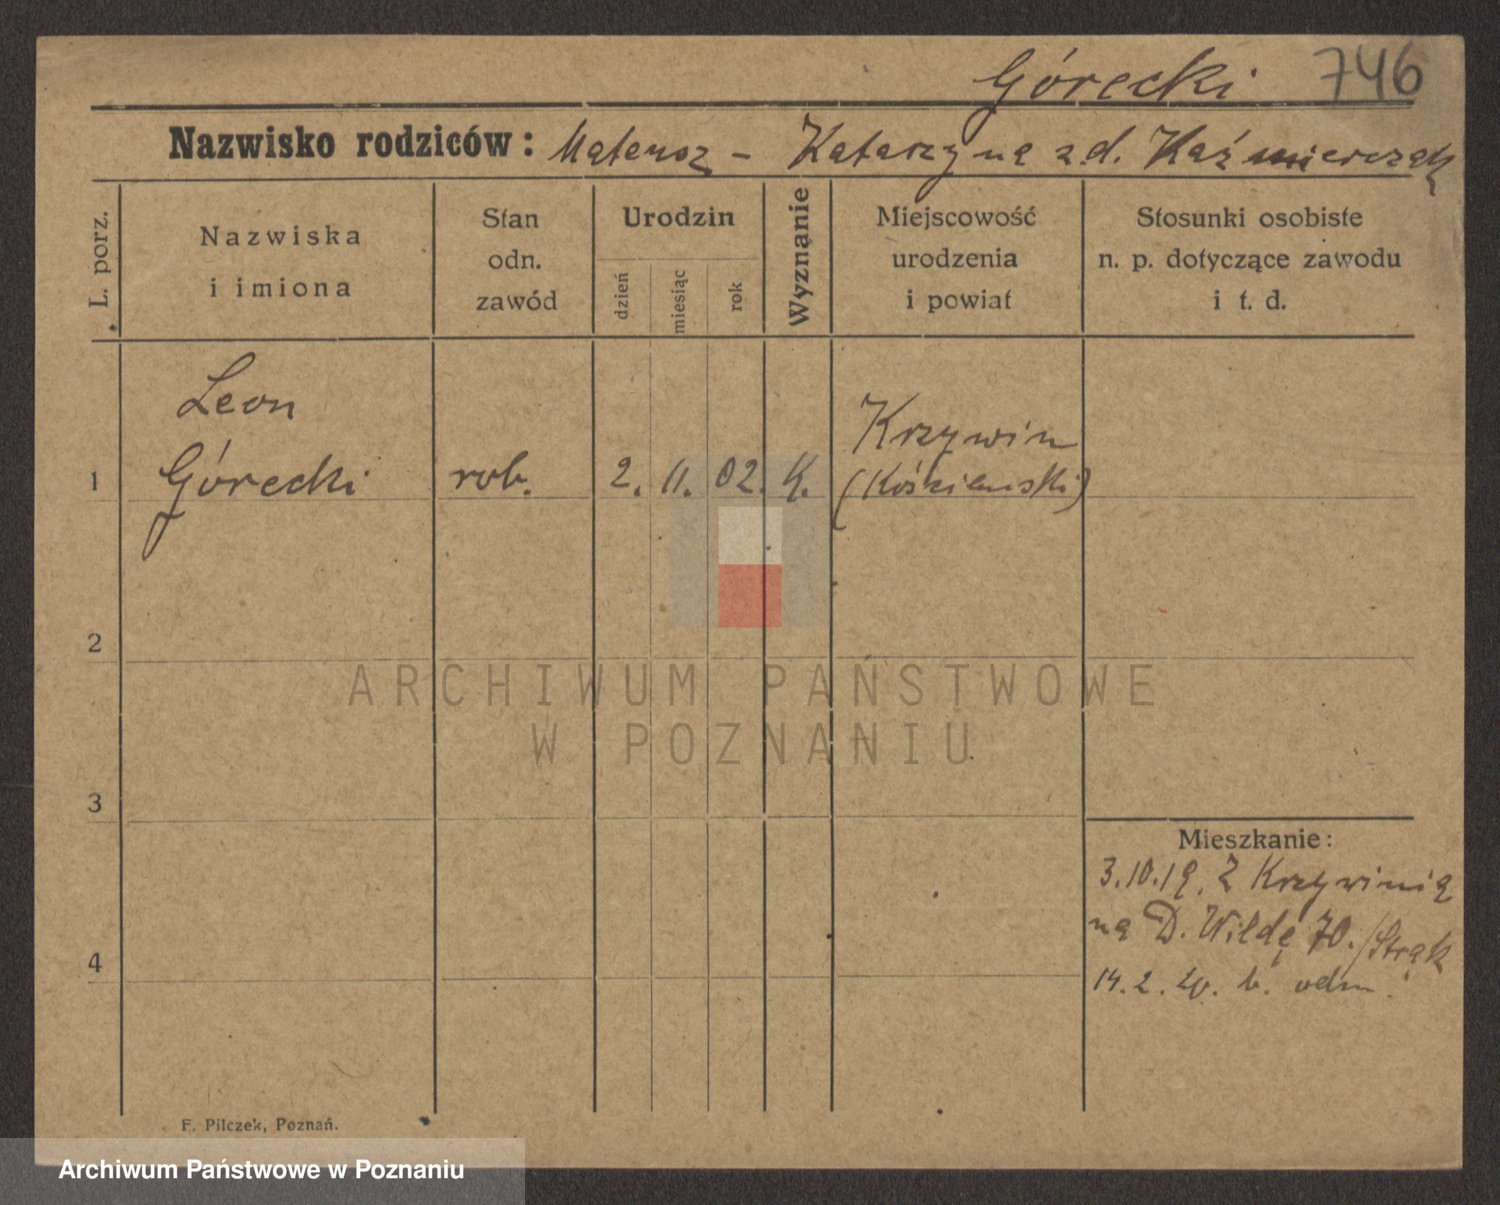 Górecki 746
Nazwisko rodziców: Mateusz - Katarzyna z d. Kaźmierczak
L. porz.
Nazwiska
i imiona
Stan
odn.
zawód
Urodzin
dzień
miesiąc
rok
Wyznanie
Miejscowość
urodzenia
i powiat
Stosunki osobiste
n. p. dotyczące zawodu
i t. d.
Leon
1 Górecki rob. 2. 11. 02. K. Krzywin
(Kościański)
2
ARCHIWUM PAŃSTWOWE
W POZNANIU
3
Mieszkanie:
3.10.19. Z Krzywinia
na D. Wildę 70. /Strąk
4
14.2.20. b. odm.
F. Pilczek, Poznań.
Archiwum Państwowe w Poznaniu